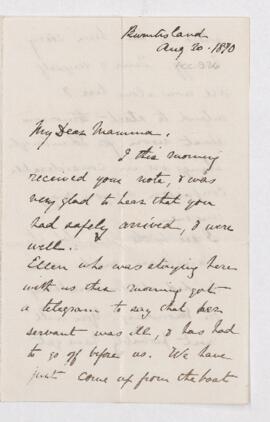 Burntisland
Aug 30. 1890
My Dear Mamma.
I this morning
received your note, & was
very glad to hear that you
had safely arrived, & were
well.
Ellen who was staying here
with us this morning got
a telegram to say that her
servant was ill, & has had
to go off before us. We have
just come up from the boat